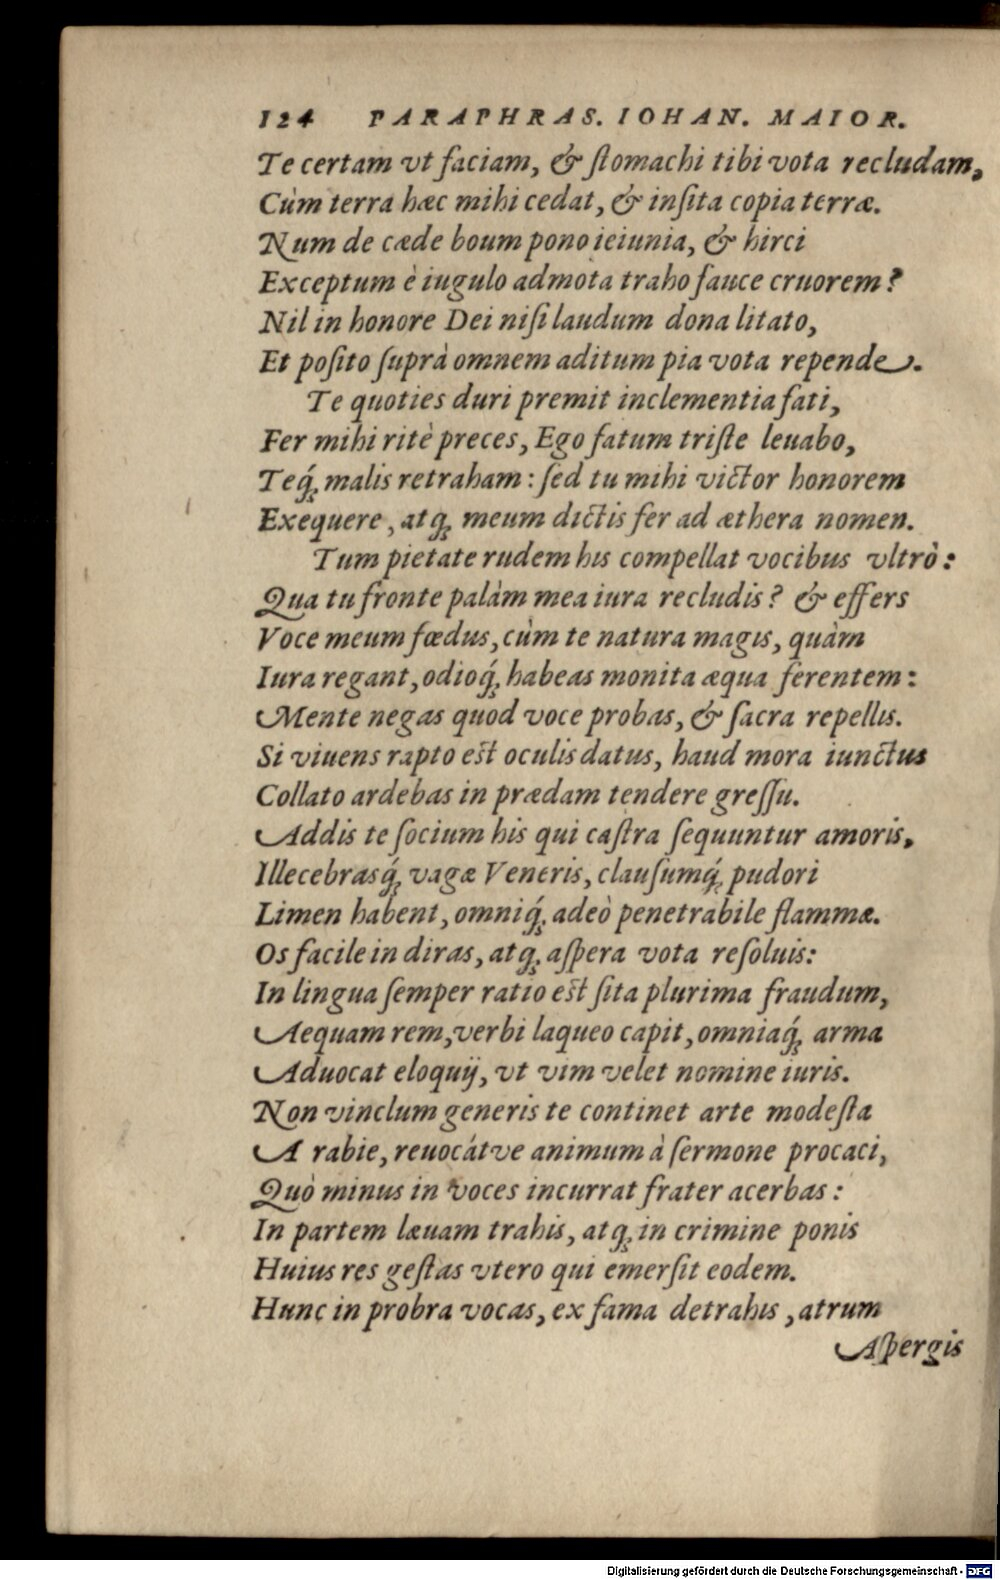 124 PARAPHRAS. IOHAN. MAIOR.
Te certam vt faciam, & ſtomachi tibi vota recludam,
Cùm terra hæc mihi cedat, & inſita copia terræ.
Num de cæde boum pono ieiunia, & hirci
Exceptum è iugulo admota traho fauce cruorem?
Nil in honore Dei niſi laudum dona litato,
Et poſito ſuprà omnem aditum pia vota repende.
Te quoties duri premit inclementia fati,
Fer mihi ritè preces, Ego fatum triſte leuabo,
Teq́; malis retraham: ſed tu mihi victor honorem
Exequere, atq; meum dictis fer ad æthera nomen.
Tum pietate rudem his compellat vocibus vltrò:
Qua tu fronte palàm mea iura recludis? & effers
Voce meum fœdus, cùm te natura magis, quàm
Iura regant, odioq́; habeas monita æqua ferentem:
Mente negas quod voce probas, & ſacra repellis.
Si viuens rapto eſt oculis datus, haud mora iunctus
Collato ardebas in prædam tendere greſſu.
Addis te ſocium his qui caſtra ſequuntur amoris,
Illecebrasq́; vagæ Veneris, clauſumq́; pudori
Limen habent, omniq́; adeò penetrabile flammæ.
Os facile in diras, atq; aſpera vota reſoluis:
In lingua ſemper ratio eſt ſita plurima fraudum,
Aequam rem, verbi laqueo capit, omniaq́; arma
Aduocat eloquij, vt vim velet nomine iuris.
Non vinclum generis te continet arte modeſta
A rabie, reuocátve animum à ſermone procaci,
Quò minus in voces incurrat frater acerbas:
In partem læuam trahis, atq; in crimine ponis
Huius res geſtas vtero qui emerſit eodem.
Hunc in probra vocas, ex fama detrahis, atrum
Aſpergis
Digitalisierung gefördert durch die Deutsche Forschungsgemeinschaft - DFG